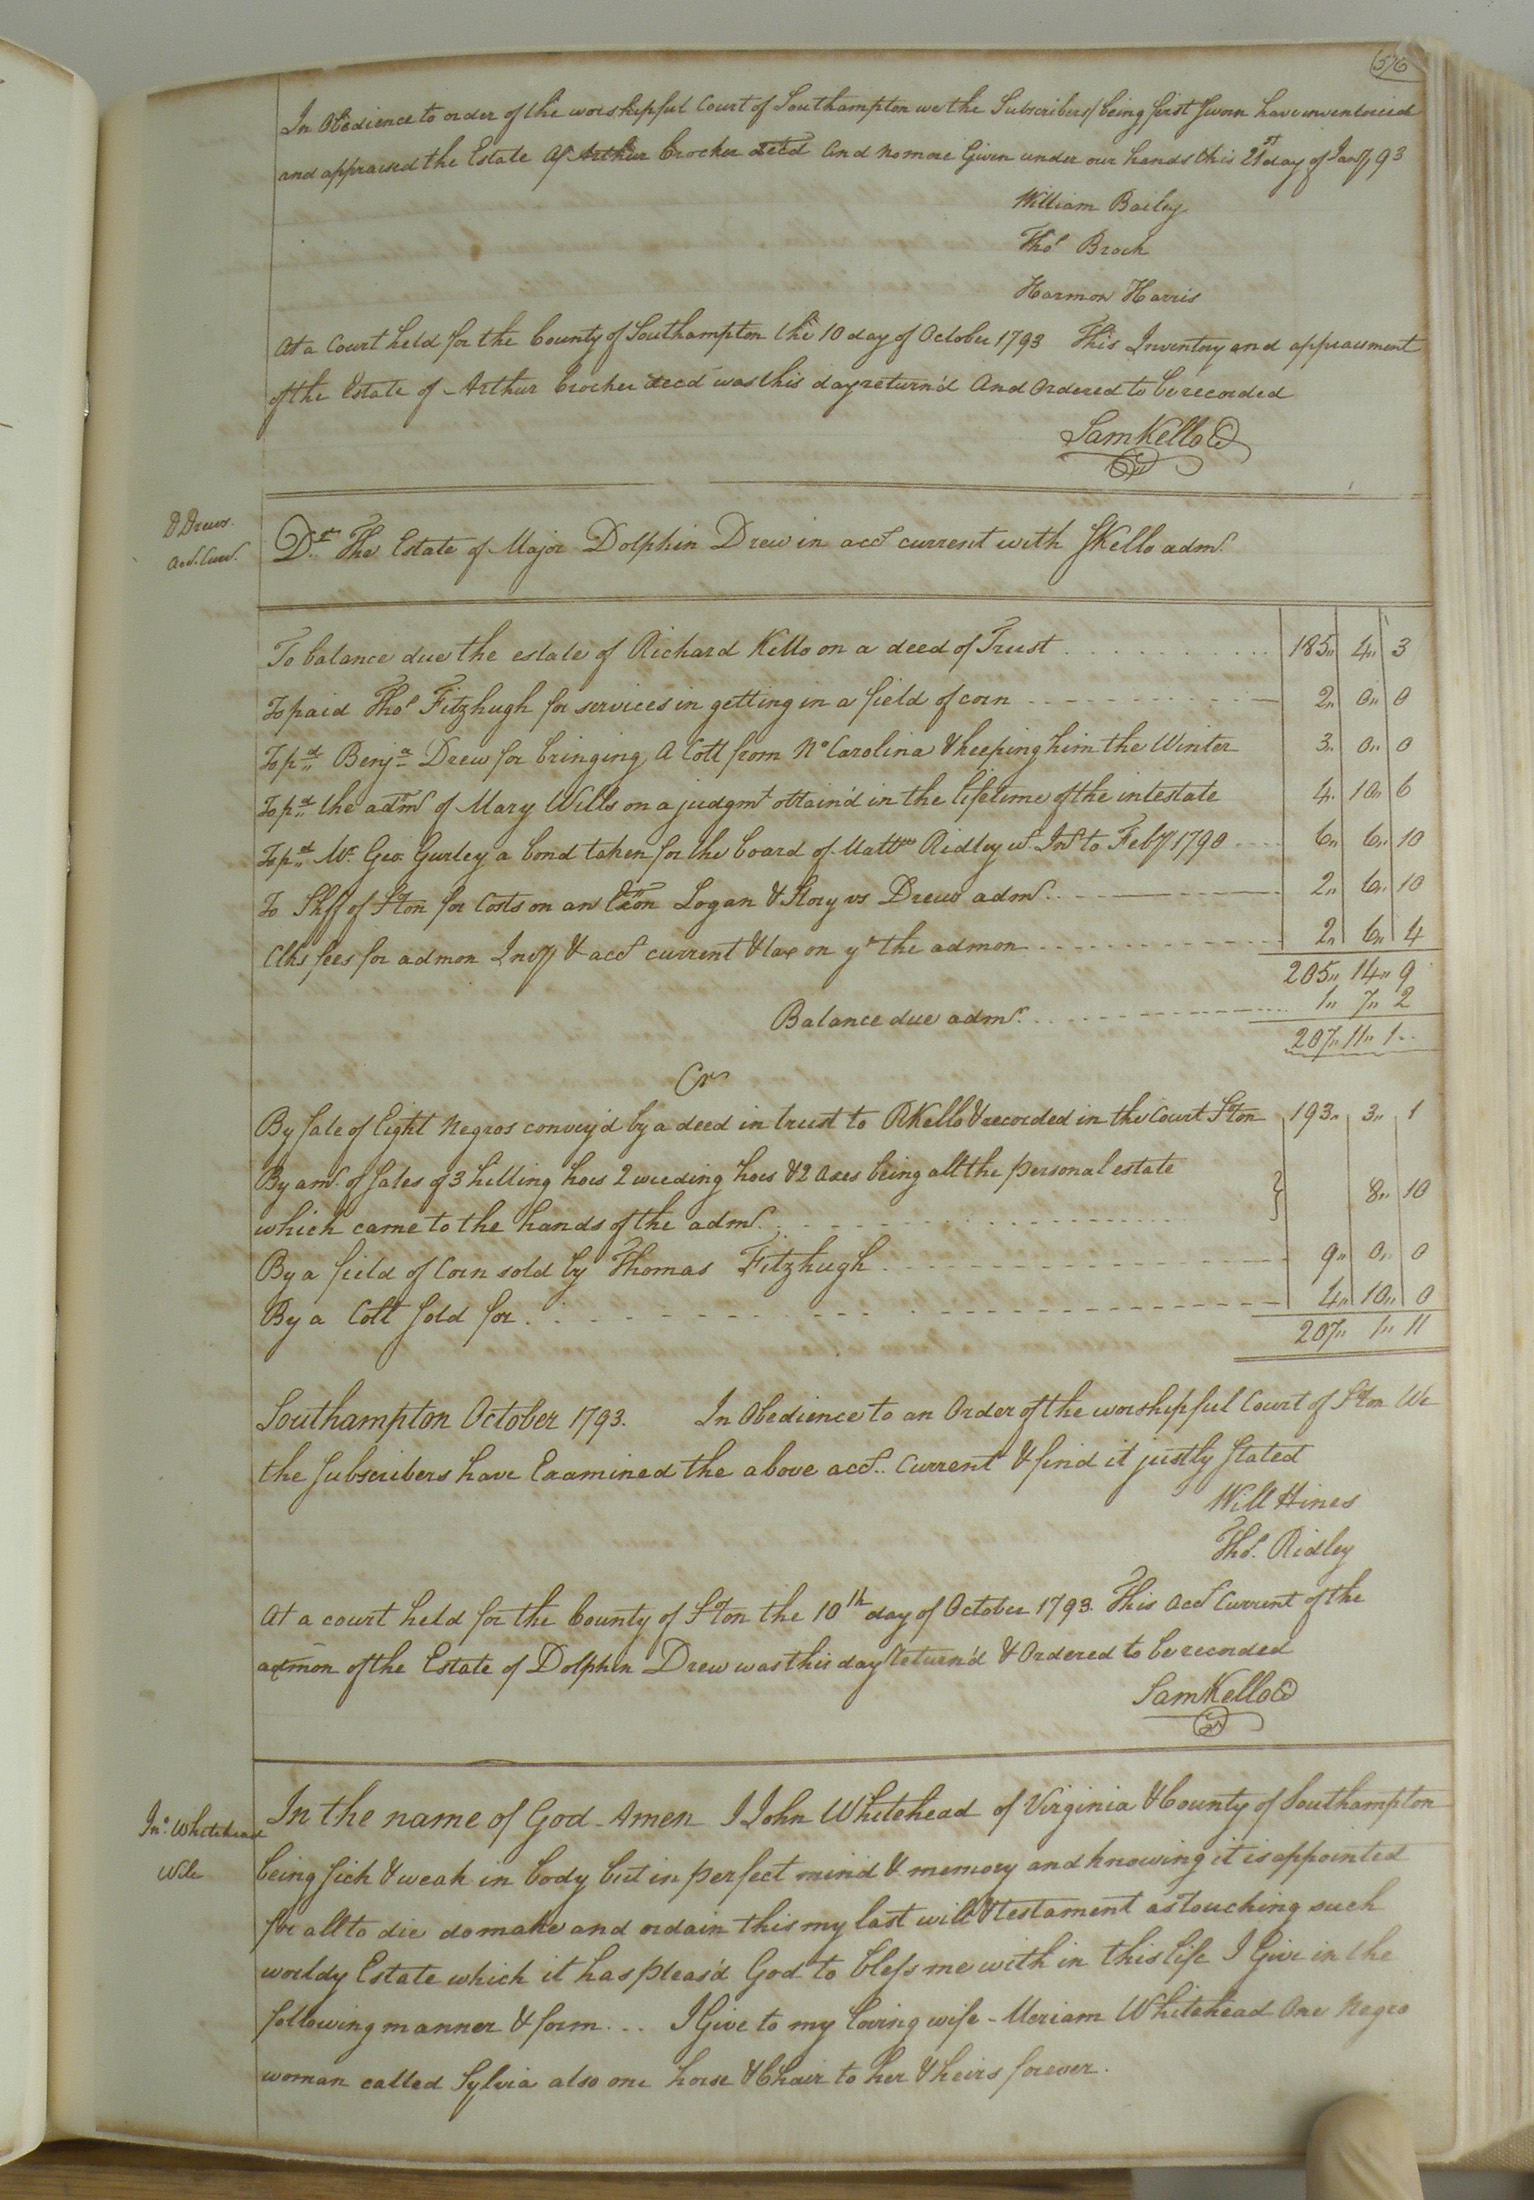 576
In Obedience to order of the worshipful Court of Southampton we the Subscribers being first Sworn have inventoried
and appraised the Estate of Arthur Crocker decd And no more Given under our hands this 21st day of Jany 93
William Bailey
Thos Brock
Harmon Harris
At a Court held for the County of Southampton the 10 day of October 1793 This Inventory and appraisment
of the Estate of Arthur Crocker decd was this day return'd And Ordered to be recorded
Sam Kello C
D Drews
Acct. Curr.
Dr. The Estate of Major Dolphin Drew in acct current with S Kello admr.
To balance due the estate of Richard Kello on a deed of Trust 185 4 3
To paid Thos Fitzhugh for services in getting in a field of corn 2 0 0
To pd Benja Drew for bringing A Colt from No Carolina & keeping him the Winter 3 0 0
To pd the admr of Mary Wills on a judgmt obtain'd in the lifetime of the intestate 4 10 6
To pd Mr Geo Gurley a bond taken for the board of Mattw Ridley wt Int to Feby 1790 6 6 10
To Shff of Ston for Costs on an Exon Logan & Story vs Drews admr. 2 6 10
Clks fees for admon Invy & acct current & tax on yr the admon 2 6 4
205 14 9
Balance due admr. 1 7 2
207 11 1
Cr
By Sale of Eight Negros convey'd by a deed in trust to R Kello & recorded in the Court Ston 193 3 1
By amt. of Sales of 3 hilling hoes 2 weeding hoes & 2 axes being all the personal estate
which came to the hands of the admr. 8 10
By a field of Corn sold by Thomas Fitzhugh 9 0 0
By a Colt Sold for 4 10 0
207 1 11
Southampton October 1793. In Obedience to an Order of the worshipful Court of Ston We
the Subscribers have Examined the above acct. Current & find it justly Stated
Will Hines
Thos. Ridley
At a court held for the County of Ston the 10th day of October 1793. This Acct Current of the
admon of the Estate of Dolphin Drew was this day Return'd & Ordered to be recorded
Sam Kello C
Jno. Whitehead
Will
In the name of God Amen I John Whitehead of Virginia & County of Southampton
being Sick & weak in body but in perfect mind & memory and knowing it is appointed
for all to die do make and ordain this my last will & testament as touching such
worldy Estate which it has pleas'd God to bless me with in this life I Give in the
following manner & form... I Give to my loving wife Meriam Whitehead One Negro
woman called Sylvia also one horse & Chair to her & heirs forever.